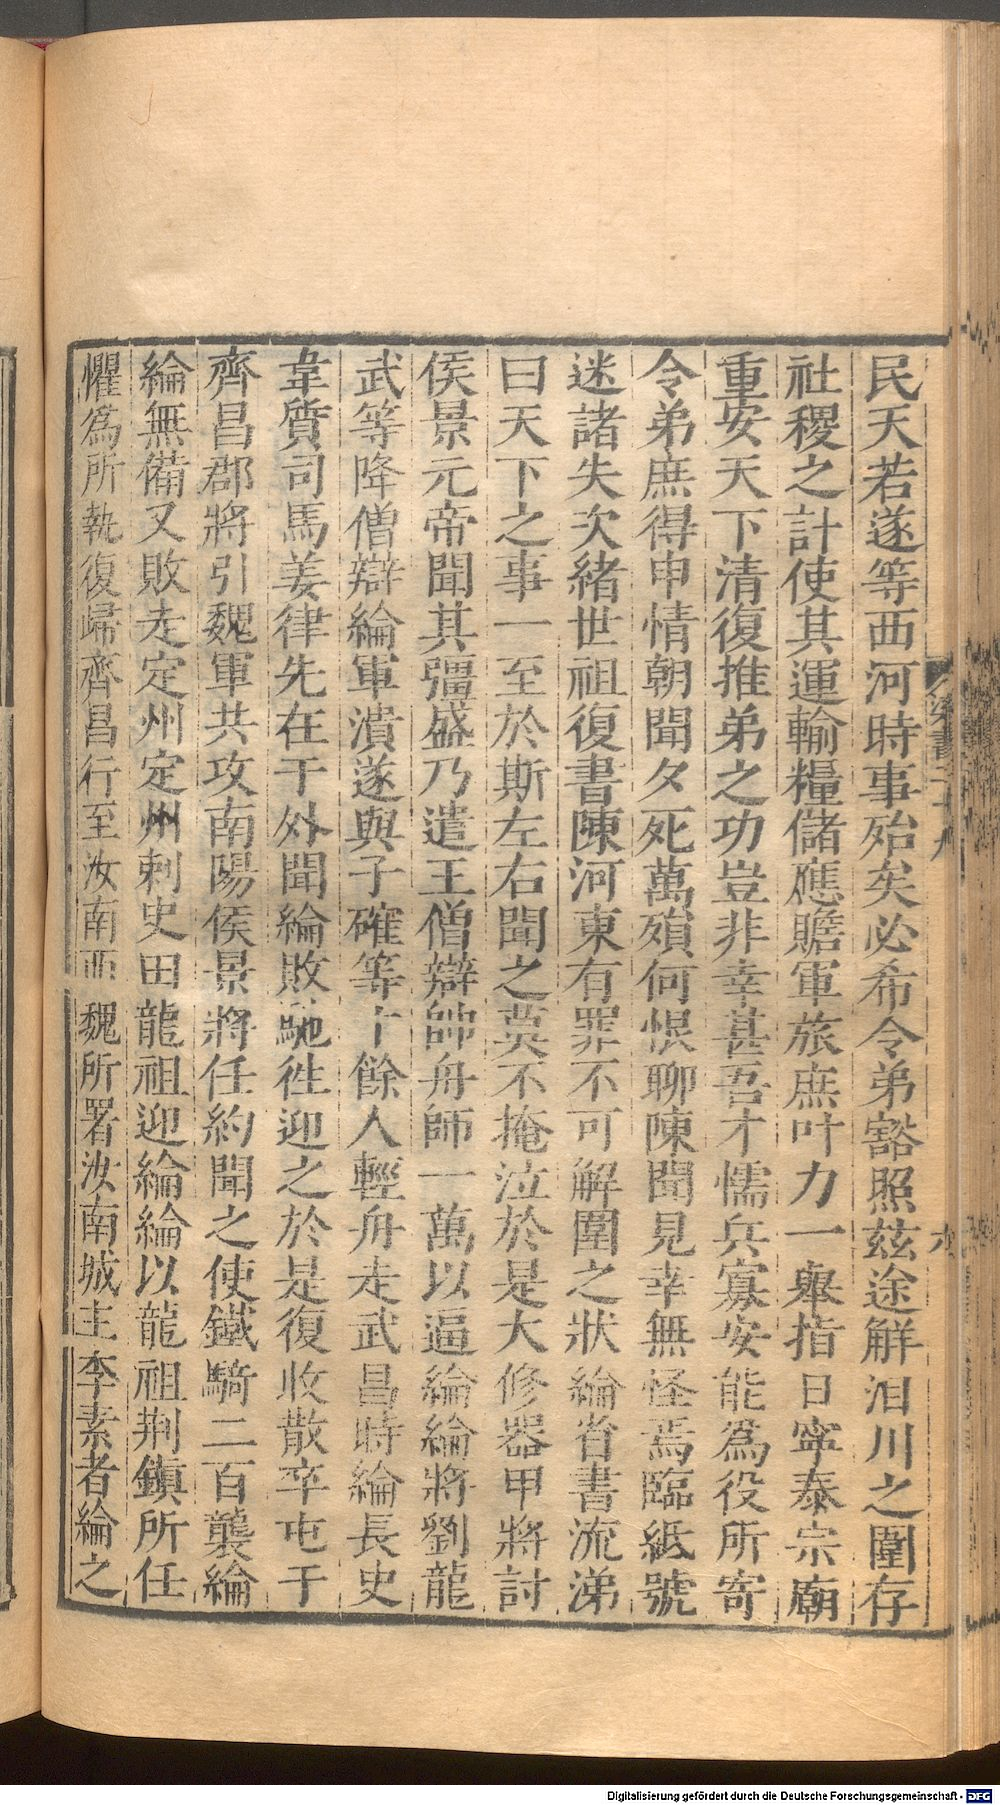 民天若遂等西河時事殆矣必希令弟豁照茲途解汨川之圍存
社稷之計使其運輸糧儲應贍軍旅庶叶力一舉指日寧泰宗廟
重安天下清復推弟之功豈非幸甚吾才懦兵寡安能爲役所寄
令弟庶得申情朝聞夕死萬殞何恨聊陳聞見幸無怪焉臨紙號
迷諸失次緒世祖復書陳河東有罪不可解圍之狀綸省書流涕
曰天下之事一至於斯左右聞之莫不掩泣於是大修器甲將討
侯景元帝聞其彊盛乃遣王僧辯帥舟師一萬以逼綸綸將劉龍
武等降僧辯綸軍潰遂與子確等十餘人輕舟走武昌時綸長史
韋質司馬姜律先在于外聞綸敗馳徃迎之於是復收散卒屯于
齊昌郡將引魏軍共攻南陽侯景將任約聞之使鐵騎二百襲綸
綸無備又敗走定州定州刺史田龍祖迎綸綸以龍祖荆鎮所任
懼爲所執復歸齊昌行至汝南西魏所署汝南城主李素者綸之
梁書二十九
六
Digitalisierung gefördert durch die Deutsche Forschungsgemeinschaft - DFG